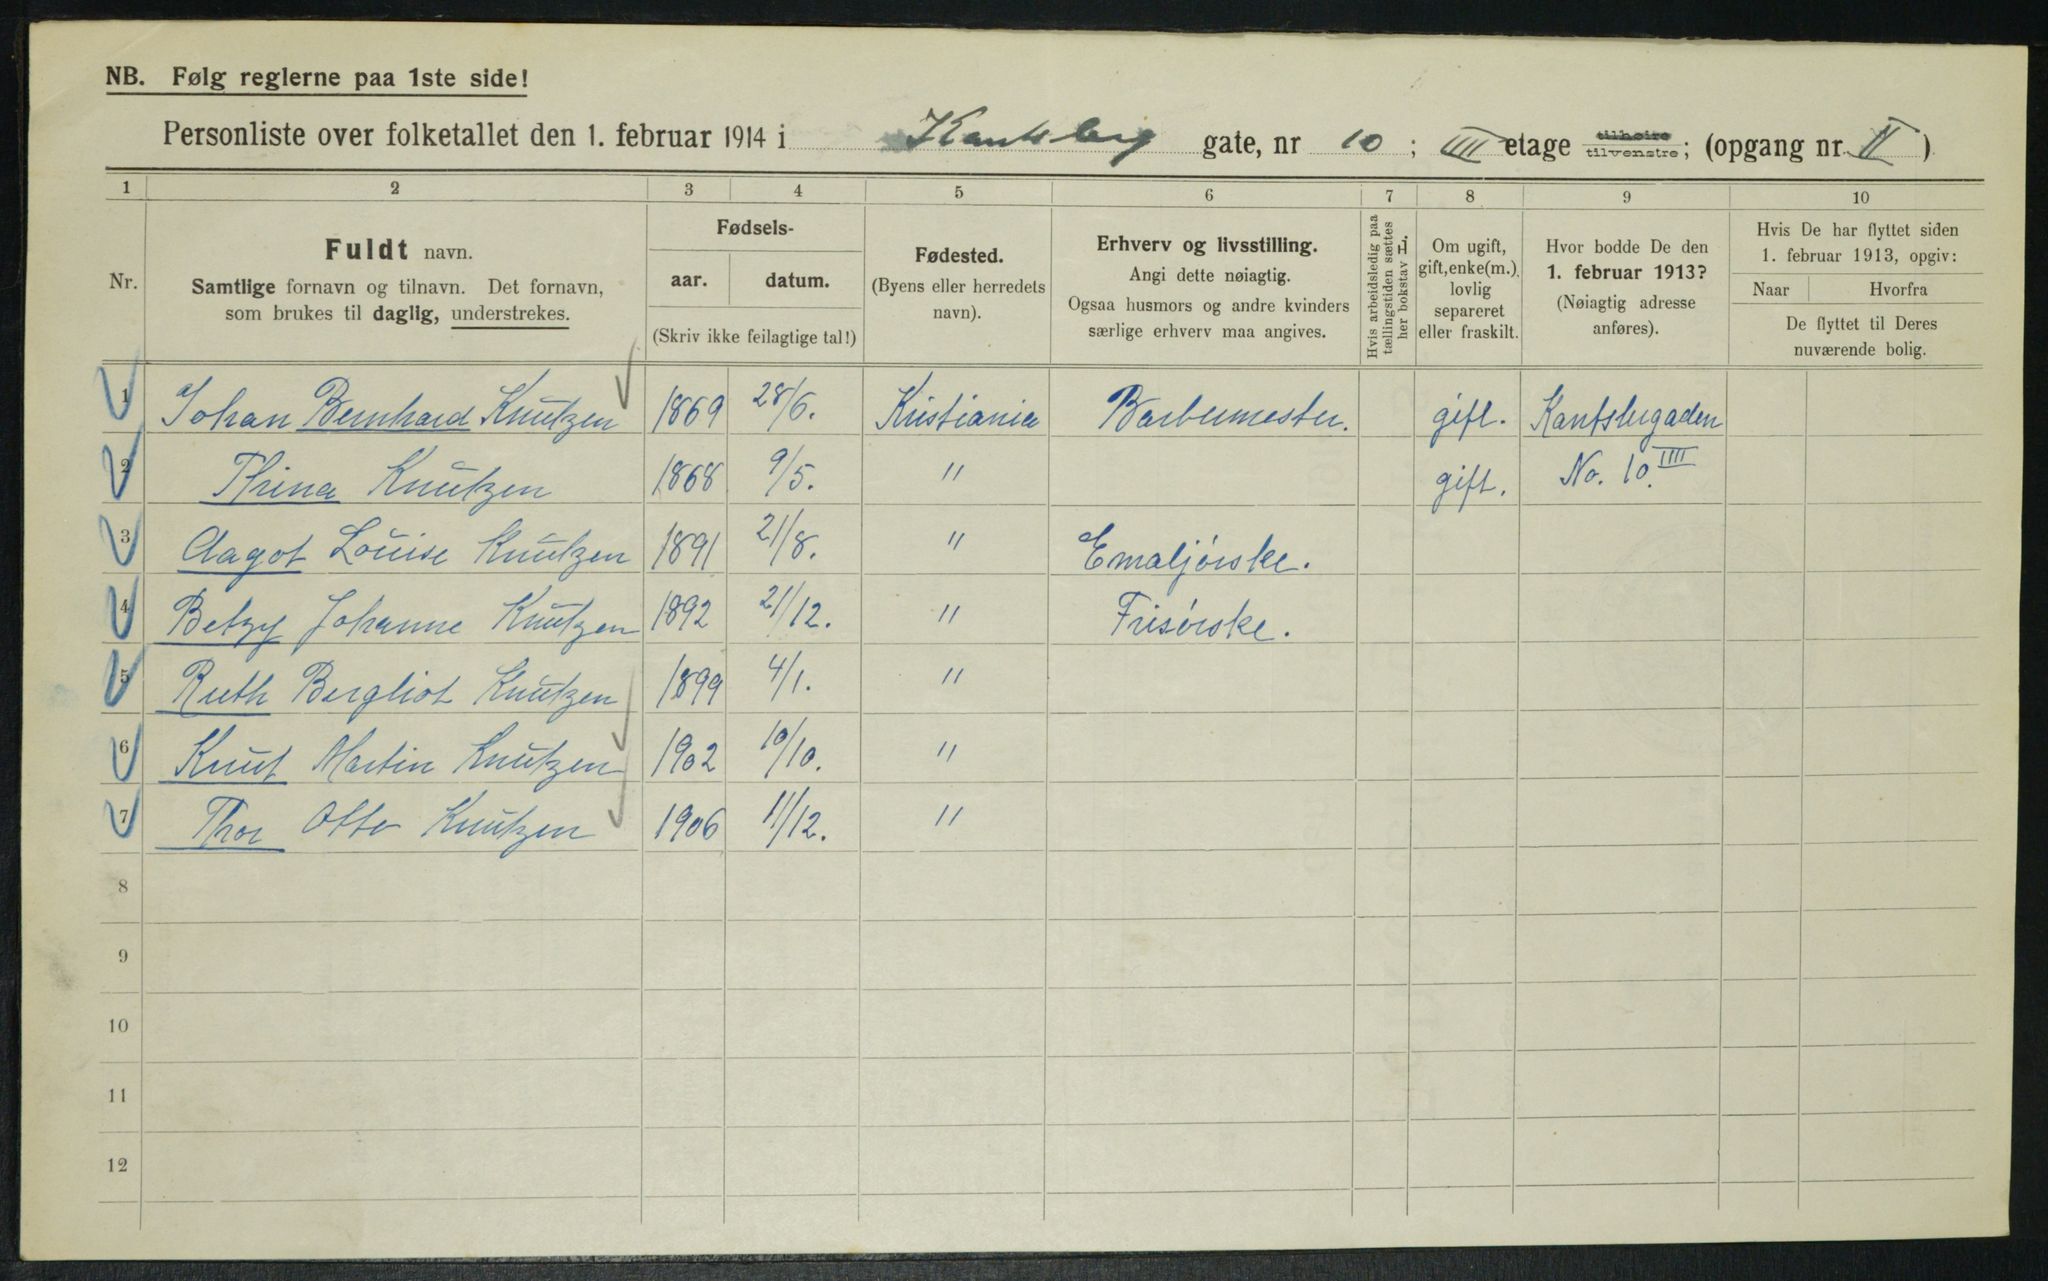 NB. Følg reglerne paa 1ste side!
Personliste over folketallet den 1. februar 1914 i Kantsberg gate, nr 10; IIII etage tilhøire tilvenstre; (opgang nr. II)
1 2 3 4 5 6 7 8 9 10
Nr.
Fuldt navn.
Samtlige fornavn og tilnavn. Det fornavn,
som brukes til daglig, understrekes.
Fødsels-
aar. datum.
(Skriv ikke feilagtige tal!)
Fødested.
(Byens eller herredets
navn).
Erhverv og livsstilling.
Angi dette nøiagtig.
Ogsaa husmors og andre kvinders
særlige erhverv maa angives.
Hvis arbeidsledig paa
tællingstiden sættes
her bokstav L.
Om ugift,
gift, enke(m.),
lovlig
separeret
eller fraskilt.
Hvor bodde De den
1. februar 1913?
(Nøiagtig adresse
anføres).
Hvis De har flyttet siden
1. februar 1913, opgiv:
Naar Hvorfra
De flyttet til Deres
nuværende bolig.
1 Johan Bernhard Knutzen 1869 28/6. Kristiania Barbermester. gift. Kantsbergaden
2 Thina Knutzen 1868 9/5. " gift. No. 10 IIII
3 Aagot Louise Knutzen 1891 21/8. " Emaljørske.
4 Betzy Johanne Knutzen 1892 21/12. " Frisørske.
5 Ruth Bergliot Knutzen 1899 4/1. "
6 Knut Martin Knutzen 1902 10/10. "
7 Thor Otto Knutzen 1906 11/12. "
8
9
10
11
12